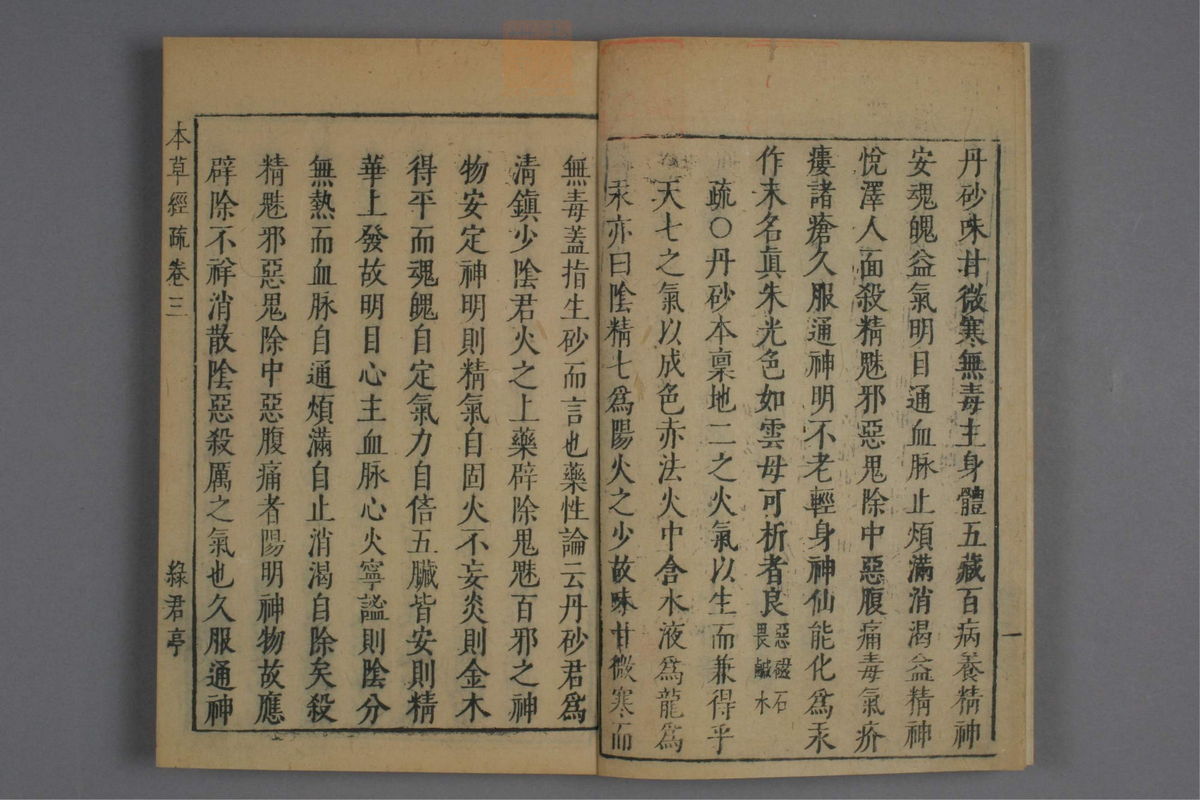 丹砂味甘微寒無毒主身體五藏百病養精神
安魂魄益氣明目通血脉止煩滿消渴益精神
悅澤人面殺精魅邪惡鬼除中惡腹痛毒氣疥
瘻諸瘡久服通神明不老輕身神仙能化爲汞
作末名眞朱光色如雲母可析者良惡磁石畏鹹水
疏〇丹砂本稟地二之火氣以生而兼得乎
天七之氣以成色赤法火中含水液爲龍爲
汞亦曰陰精七爲陽火之少故味甘微寒而
一
無毒蓋指生砂而言也藥性論云丹砂君爲
淸鎮少陰君火之上藥辟除鬼魅百邪之神
物安定神明則精氣自固火不妄炎則金木
得平而魂魄自定氣力自倍五臟皆安則精
華上發故明目心主血脉心火寧謐則陰分
無熱而血脉自通煩滿自止消渴自除矣殺
精魅邪惡鬼除中惡腹痛者陽明神物故應
辟除不祥消散陰惡殺厲之氣也久服通神
本草經疏卷三
綠君亭